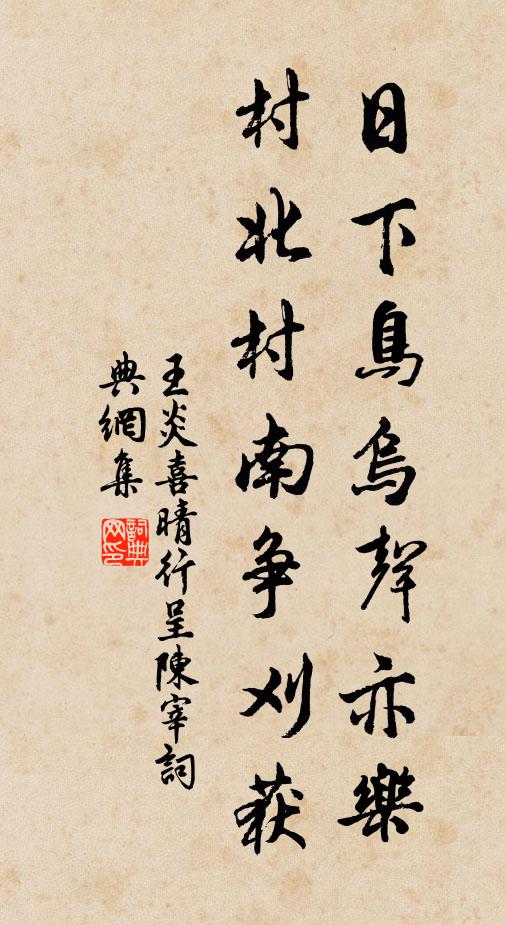 日下鳥烏聲亦樂
村北村南争刈获
王炎喜晴行呈陳宰詞
典網集
詞典网印